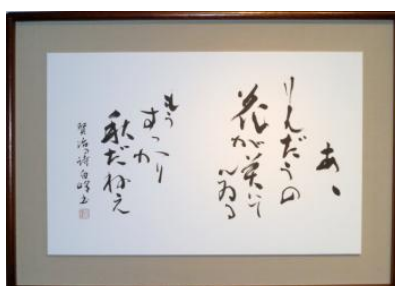 あゝ
りんだうの
花が咲いてゐる
もう
すっかり
秋だねえ
賢治の詩 白峰書